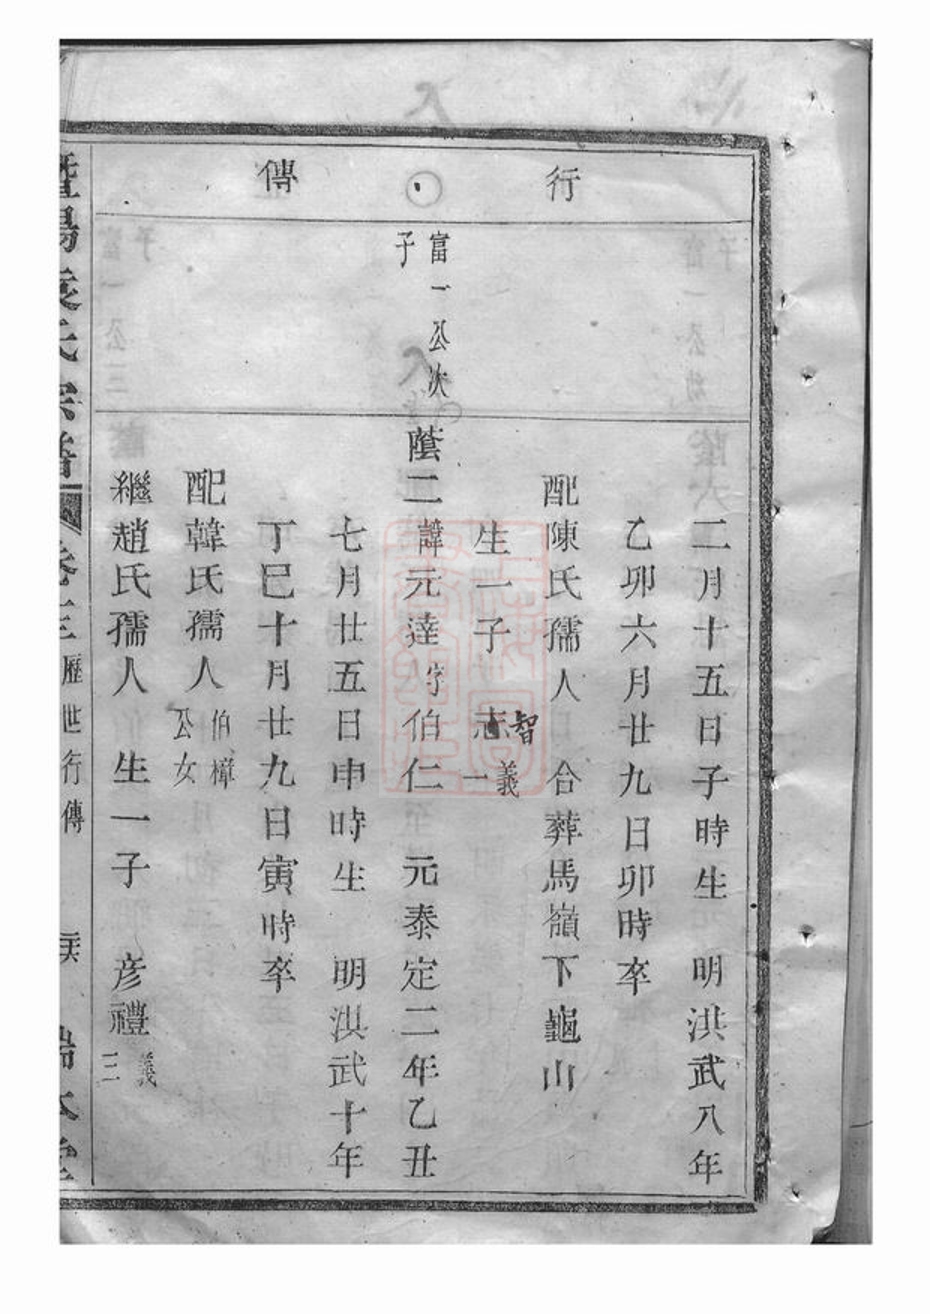 行
傳
富一公次
子
二月十五日子時生 明洪武八年
乙卯六月廿九日卯時卒
配陳氏孺人 合葬馬嶺下龜山
生一子 志智 義一
蔭二 諱元達 字伯仁 元泰定二年乙丑
七月廿五日申時生 明洪武十年
丁巳十月廿九日寅時卒
配韓氏孺人 伯樟公女
繼趙氏孺人 生一子 彥禮 義三
暨陽 氏宗譜 卷三 歷世行傳